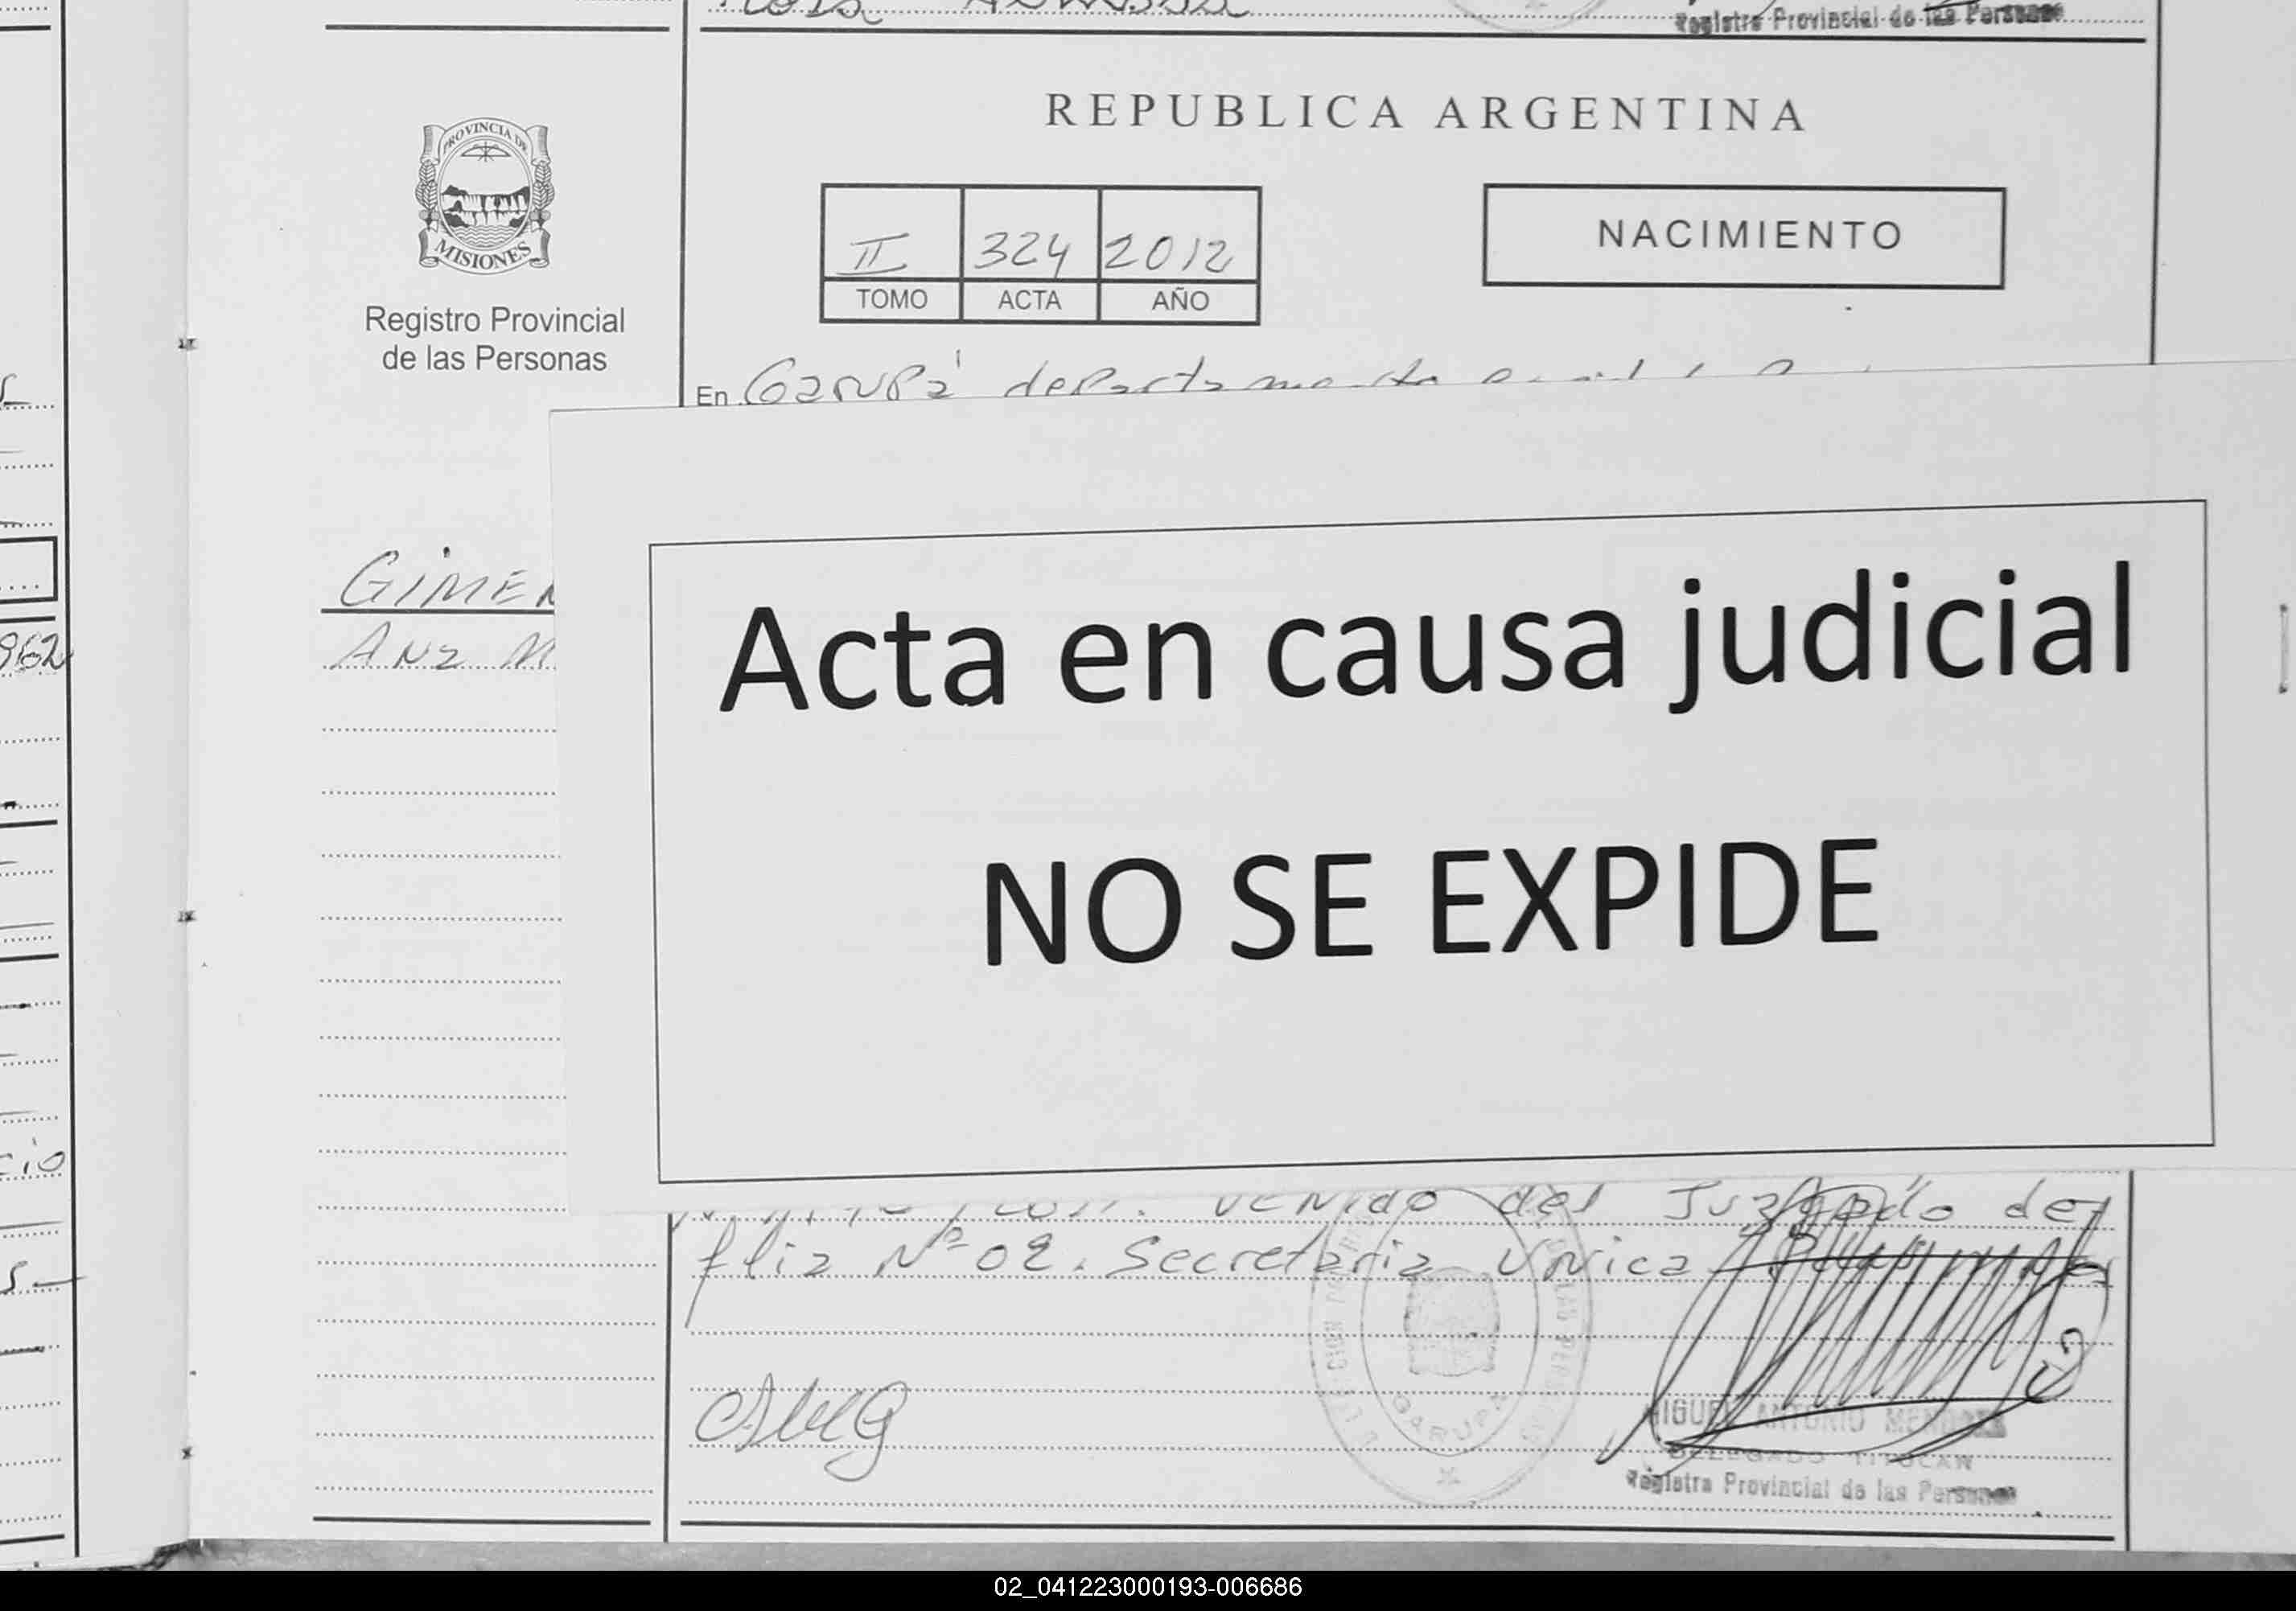 Registro Provincial de las Personas
REPUBLICA ARGENTINA
PROVINCIA DE
MISIONES
Registro Provincial
de las Personas
II 324 2012
TOMO ACTA AÑO
NACIMIENTO
En Garupá departamento
GIMEN
Ana M
962
Acta en causa judicial
NO SE EXPIDE
venido del Juzgado de
flia Nº 02. Secretaria Unica
GARUPA
MIGUEL ANTONIO
DELEGADO TITULAR
Registro Provincial de las Personas
02_041223000193-006686